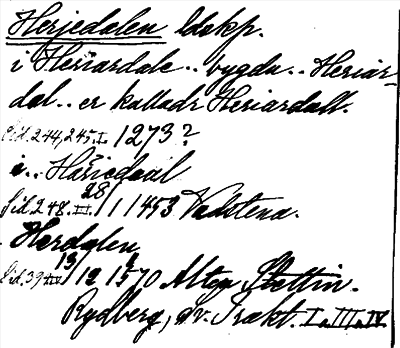 Herjedalen ldskp.
i Heriardale .. bygda .. Heriar-
dal .. er kalladr Heriardalr.
Sid. 244, 245. I. 1273?
i .. Häriedaal
Sid. 248. III. 28/1 1453 Vadstena.
Herdalen
Sid. 39 IV 13/12 1570 Alten Stettin.
Rydberg, Sv. Trakt. I, III, IV